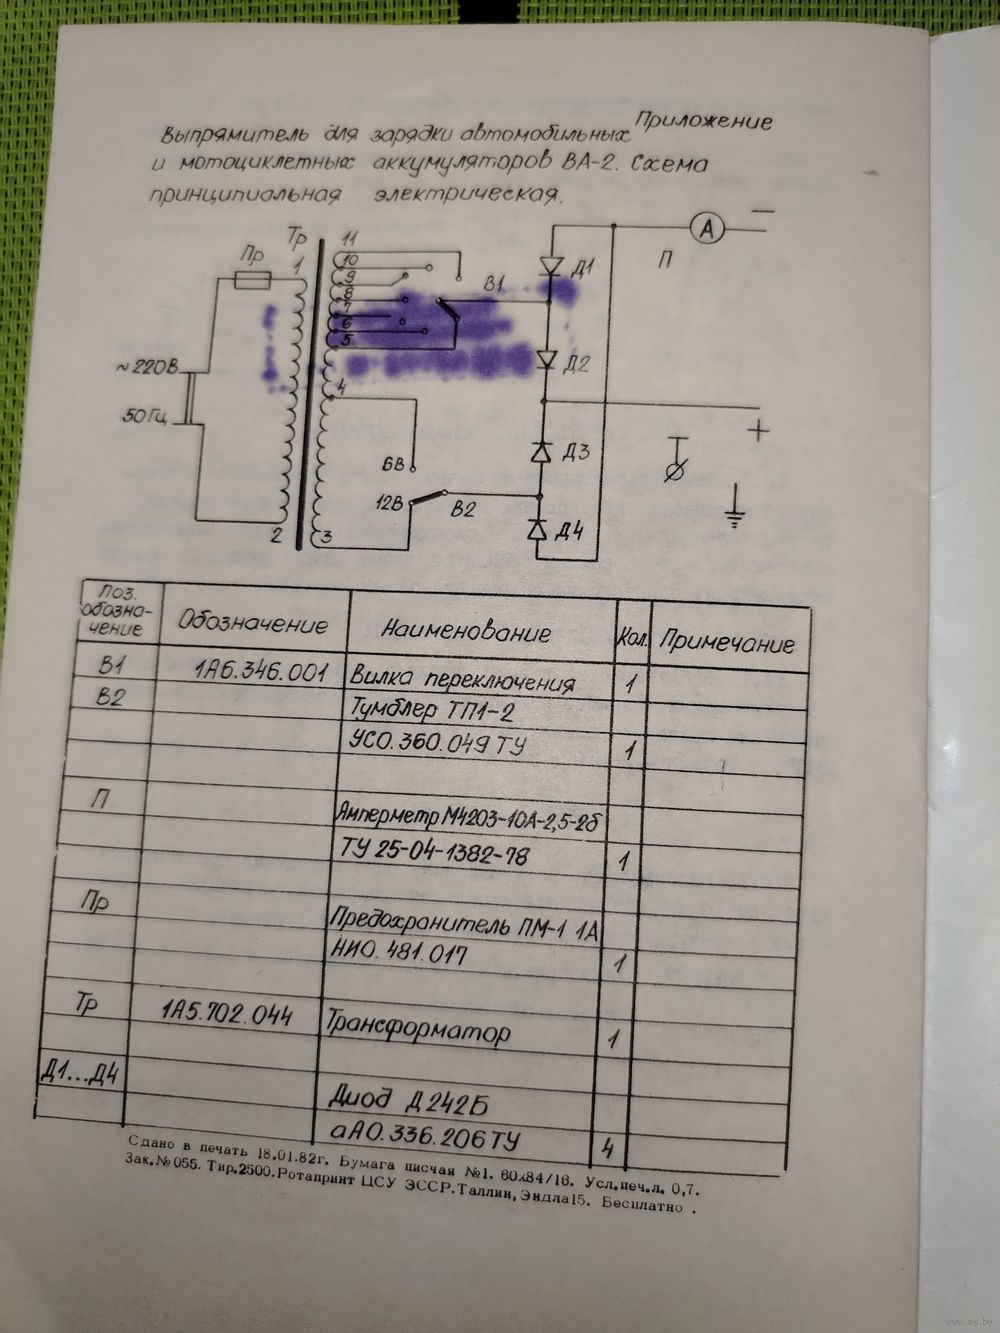 Приложение
Выпрямитель для зарядки автомобильных
и мотоциклетных аккумуляторов ВА-2. Схема
принципиальная электрическая.
Пр
Тр
1
11
10
9
8
7
6
5
4
3
2
В1
Д1
А
—
П
~220В
50Гц
Д2
+
6В
12В
В2
Д3
Д4
Поз. обозна- чение Обозначение Наименование Кол. Примечание
В1 1А6.346.001 Вилка переключения 1
В2 Тумблер ТП1-2
УСО.360.049 ТУ 1
П Амперметр М4203-10А-2,5-2б
ТУ 25-04-1382-78 1
Пр Предохранитель ПМ-1 1А
НИО.481.017 1
Тр 1А5.702.044 Трансформатор 1
Д1...Д4 Диод Д242Б
аАО.336.206ТУ 4
Сдано в печать 18.01.82г. Бумага писчая №1. 60х84/16. Усл.печ.л. 0,7.
Зак.№055. Тир.2500.Ротапринт ЦСУ ЭССР.Таллин,Эндла15. Бесплатно .
www.ay.by